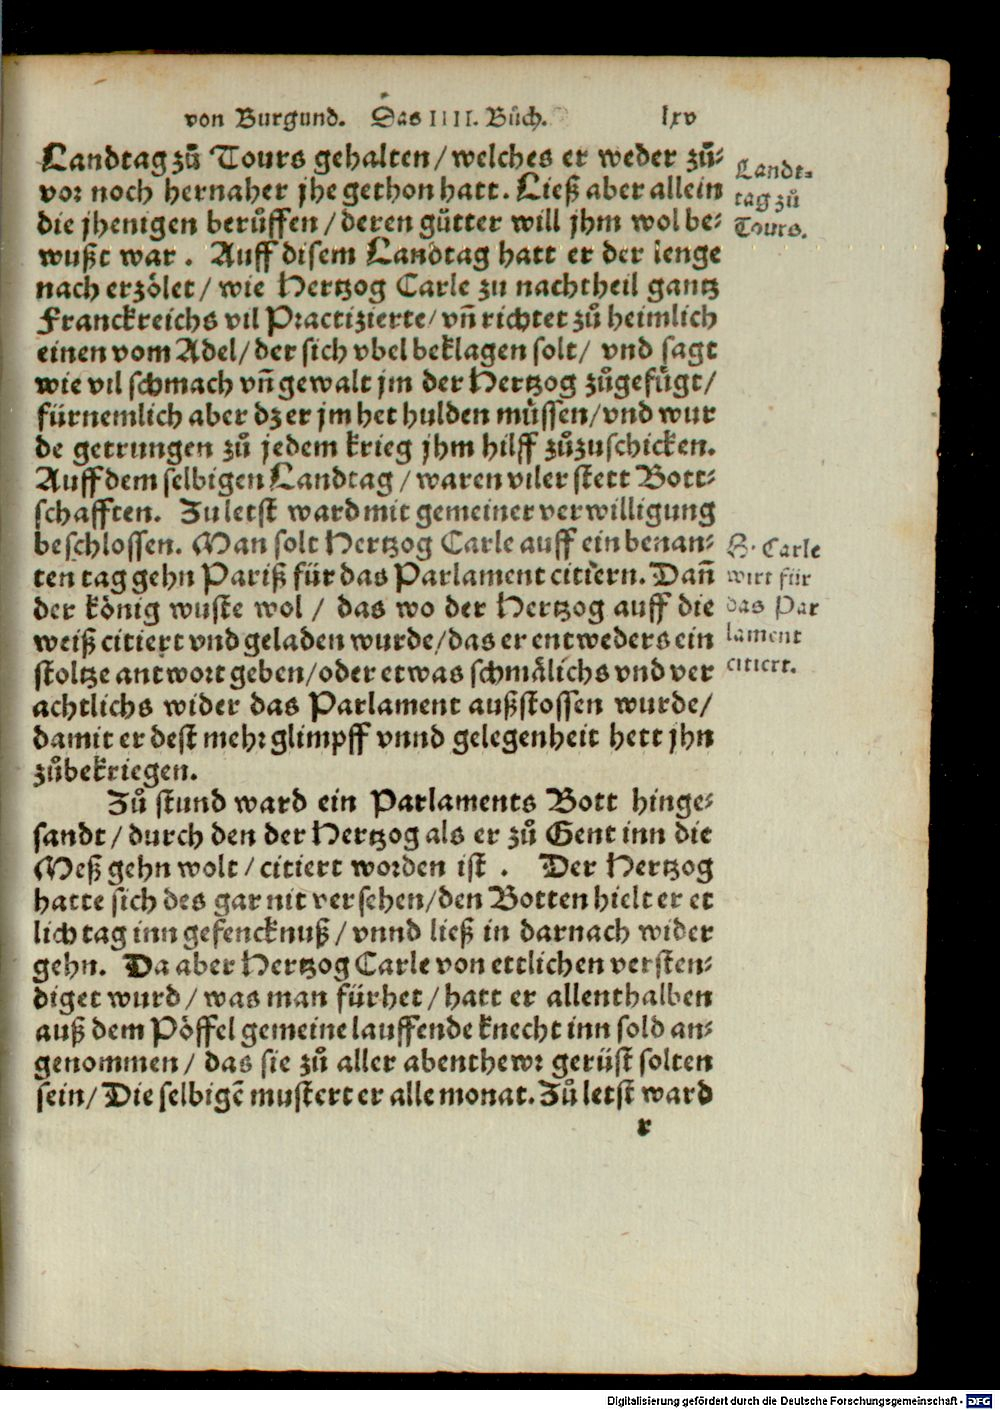 von Burgund. Das IIII. Bůch. lxv
Landtag zů Tours gehalten / welches er weder zů-
vor noch hernaher jhe gethon hatt. Ließ aber allein
die jhenigen berůffen / deren gůtter will jhm wol be-
wußt war. Auff disem Landtag hatt er der lenge
nach erzölet / wie Hertzog Carle zu nachtheil gantz
Franckreichs vil Practizierte / vñ richtet zů heimlich
einen vom Adel / der sich vbel beklagen solt / vnd sagt
wie vil schmach vñ gewalt jm der Hertzog zůgefügt /
fürnemlich aber dz er jm het hulden müssen / vnd wur
de getrungen zů jedem krieg jhm hilff zůzuschicken.
Auff dem selbigen Landtag / waren viler stett Bott-
schafften. Zu letst ward mit gemeiner verwilligung
beschlossen. Man solt Hertzog Carle auff ein benan-
ten tag gehn Pariß für das Parlament citiern. Dañ
der könig wuste wol / das wo der Hertzog auff die
weiß citiert vnd geladen wurde / das er entweders ein
stoltze antwort geben / oder etwas schmälichs vnd ver
achtlichs wider das Parlament außstossen wurde /
damit er dest mehr glimpff vnnd gelegenheit hett jhn
zůbekriegen.
Zů stund ward ein Parlaments Bott hinge-
sandt / durch den der Hertzog als er zů Gent inn die
Meß gehn wolt / citiert worden ist. Der Hertzog
hatte sich des gar nit versehen / den Botten hielt er et
lich tag inn gefencknuß / vnnd ließ in darnach wider
gehn. Da aber Hertzog Carle von ettlichen versten-
diget wurd / was man fürhet / hatt er allenthalben
auß dem Pöffel gemeine lauffende knecht inn sold an-
genommen / das sie zů aller abenthewr gerüst solten
sein / Die selbigē mustert er alle monat. Zů letst ward
r
Landt-
tag zů
Tours.
H. Carle
wirt für
das Par
lament
citiert.
Digitalisierung gefördert durch die Deutsche Forschungsgemeinschaft - DFG